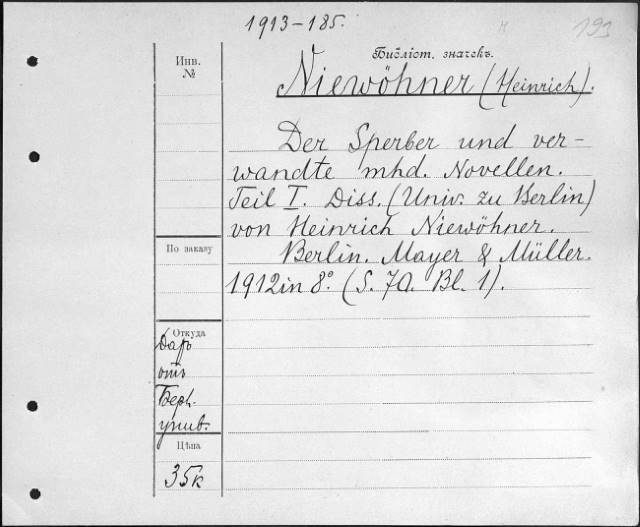 1913-185.
193
Инв.
№
Библіот. значекъ.
Niewöhner (Heinrich).
Der Sperber und ver-
wandte mhd. Novellen.
Teil I. Diss. (Univ. zu Berlin)
von Heinrich Niewöhner.
Berlin. Mayer & Müller.
1912 in 8° (S. 70. Bl. 1).
По заказу
Откуда
Даръ
отъ
Берл.
унив.
Цѣна
35к